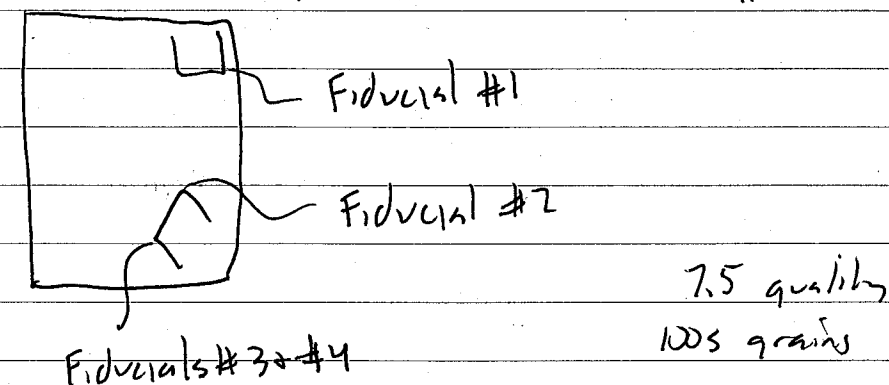 Fiducial #1
Fiducial #2
7.5 quality
100s grains
Fiducials #3 & #4